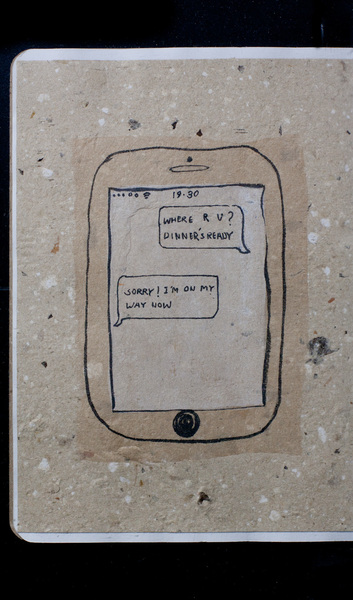 19:30
WHERE R U?
DINNER'S READY
SORRY! I'M ON MY
WAY NOW